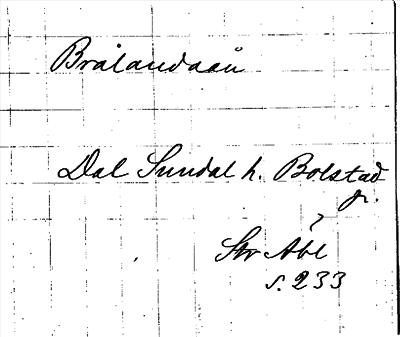 Brålandaån
Dal Sundal h. Bolstad
sn.
?
Str Abl
s. 233